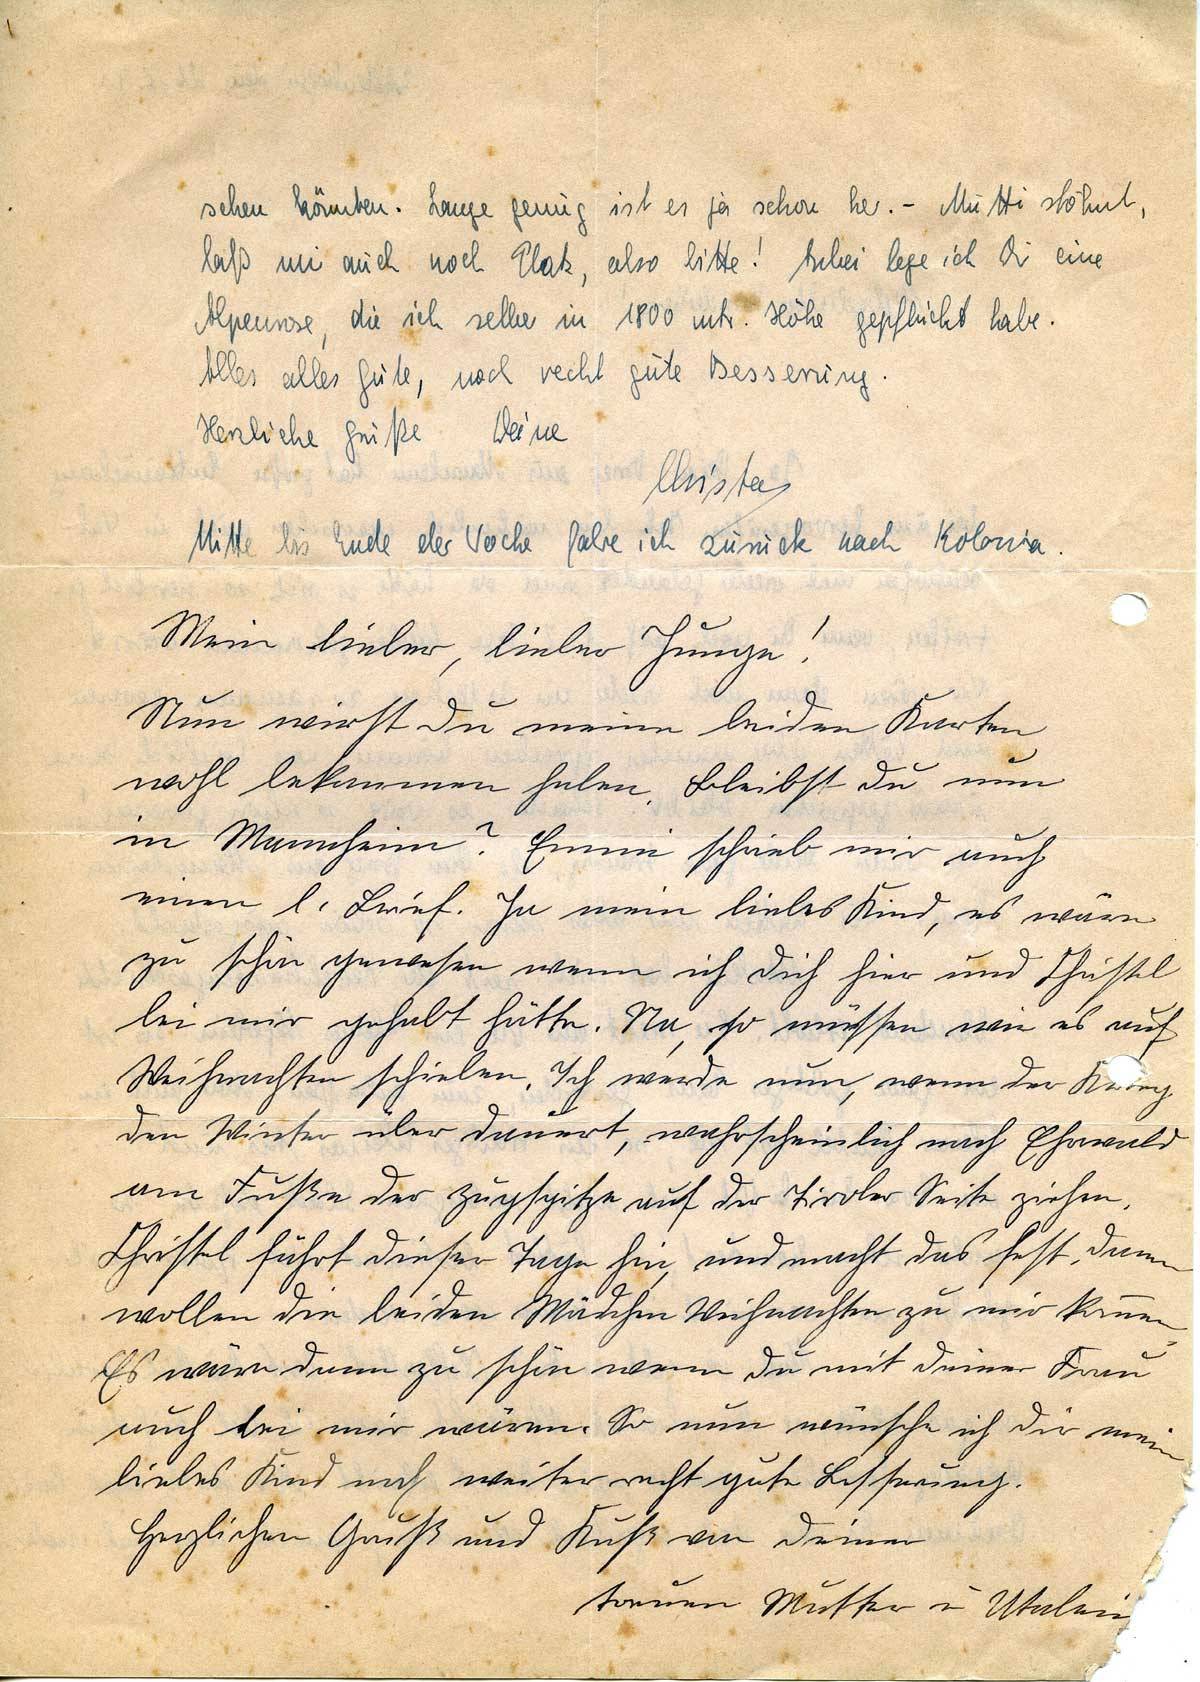 sehen könnten. Lange genug ist es ja schon her. – Mutti stöhnt,
laß mir auch noch Platz, also bitte! Anbei lege ich Dir eine
Alpenrose, die ich selber in 1800 mtr. Höhe gepflückt habe.
Alles alles Gute, noch recht gute Besserung.
Herzliche Grüße Deine
Christa
Mitte bis Ende der Woche fahre ich zurück nach Kolonia.
Mein lieber, lieber Junge!
Nun wirst Du meine beiden Karten
wohl bekommen haben. Bleibst Du nun
in Mannheim? Emmi schrieb mir auch
einen l. Brief. Ja mein liebes Kind, es wäre
zu schön gewesen wenn ich Dich hier und Christel
bei mir gehabt hätte. Na, so müssen wir es auf
Weihnachten schieben. Ich werde nun, wenn der Krieg
den Winter über dauert, wahrscheinlich nach Ehrwald
am Fuße der Zugspitze auf der Tiroler Seite ziehen.
Christel fährt dieser Tage hin, und macht das fest, dann
wollen die beiden Mädchen Weihnachten zu mir kommen.
Es wäre dann zu schön wenn Du mit Deiner Frau
auch bei mir wären. So nun wünsche ich Dir mein
liebes Kind noch weiter recht gute Besserung.
Herzlichen Gruß und Kuß von Deiner
treuen Mutter u